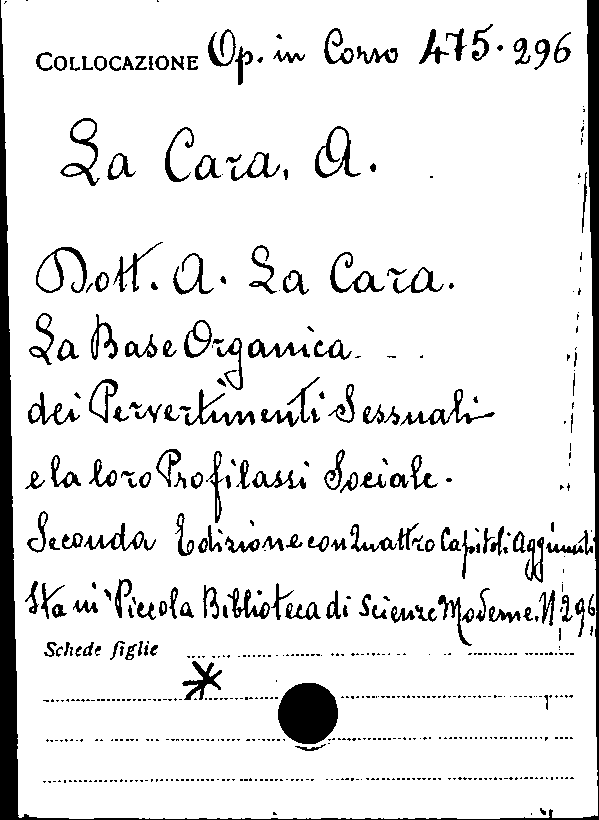 COLLOCAZIONE Op. in Corso 475.296
La Cara, A.
Dott. A. La Cara.
La Base Organica
dei Pervertimenti Sessuali
e la loro Profilassi Sociale.
Seconda Edizione con Quattro Capitoli Aggiunti
Sta in "Piccola Biblioteca di Scienze Moderne. N 296
Schede figlie